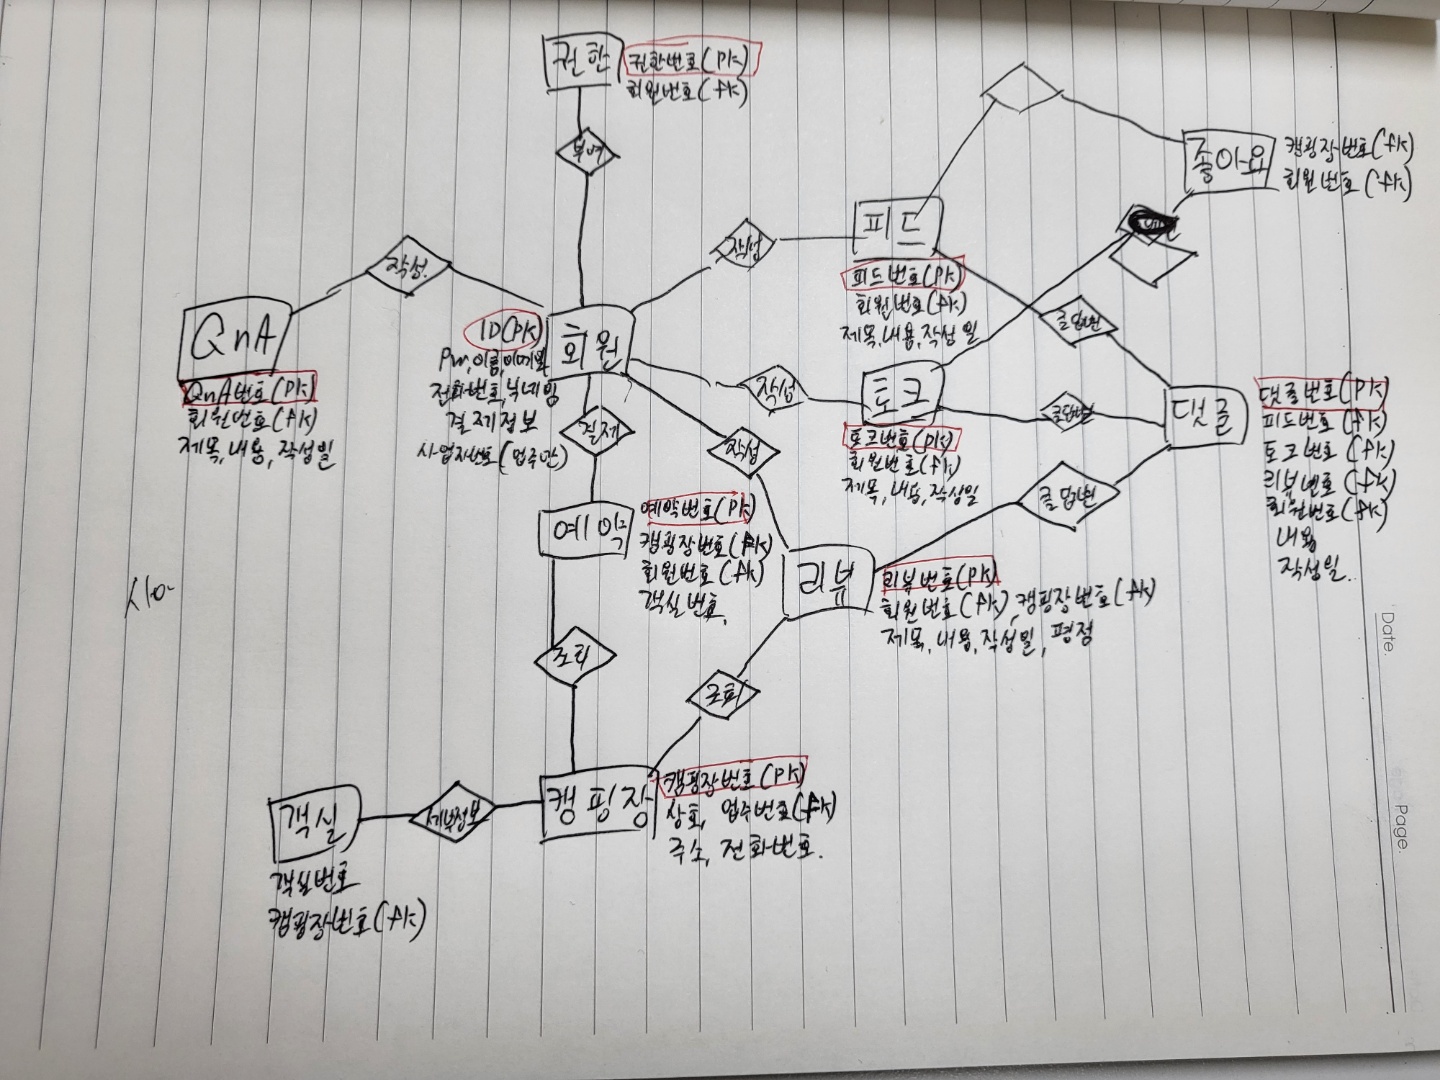 권한
권한번호(PK)
회원번호(fk)
부여
좋아요
캠핑장번호(fk)
회원번호(fk)
피드
피드번호(PK)
회원번호(fk)
제목, 내용, 작성일
작성
작성
QnA
QnA번호(PK)
회원번호(fk)
제목, 내용, 작성일
회원
ID(PK)
PW, 이름, 이메일
전화번호, 닉네임
결제정보
사업자번호(업주만)
작성
토크
토크번호(PK)
회원번호(fk)
제목, 내용, 작성일
댓글
댓글번호(PK)
피드번호(fk)
토크번호(fk)
리뷰번호(fk)
회원번호(fk)
내용
작성일.
결제
작성
예약
예약번호(PK)
캠핑장번호(fk)
회원번호(fk)
객실번호.
리뷰
리뷰번호(PK)
회원번호(fk), 캠핑장번호(fk)
제목, 내용, 작성일, 평점
조회
조회
캠핑장
캠핑장번호(PK)
상호, 업주번호(fk)
주소, 전화번호.
세부정보
객실
객실번호
캠핑장번호(fk)
Date.
Page.